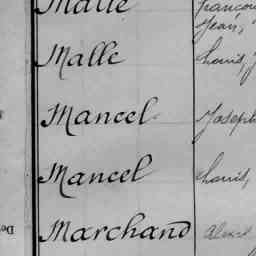 Malle Francou
Jean,
Malle Louis, J
Mancel Joseph
Mancel Louis,
Marchand Alexis